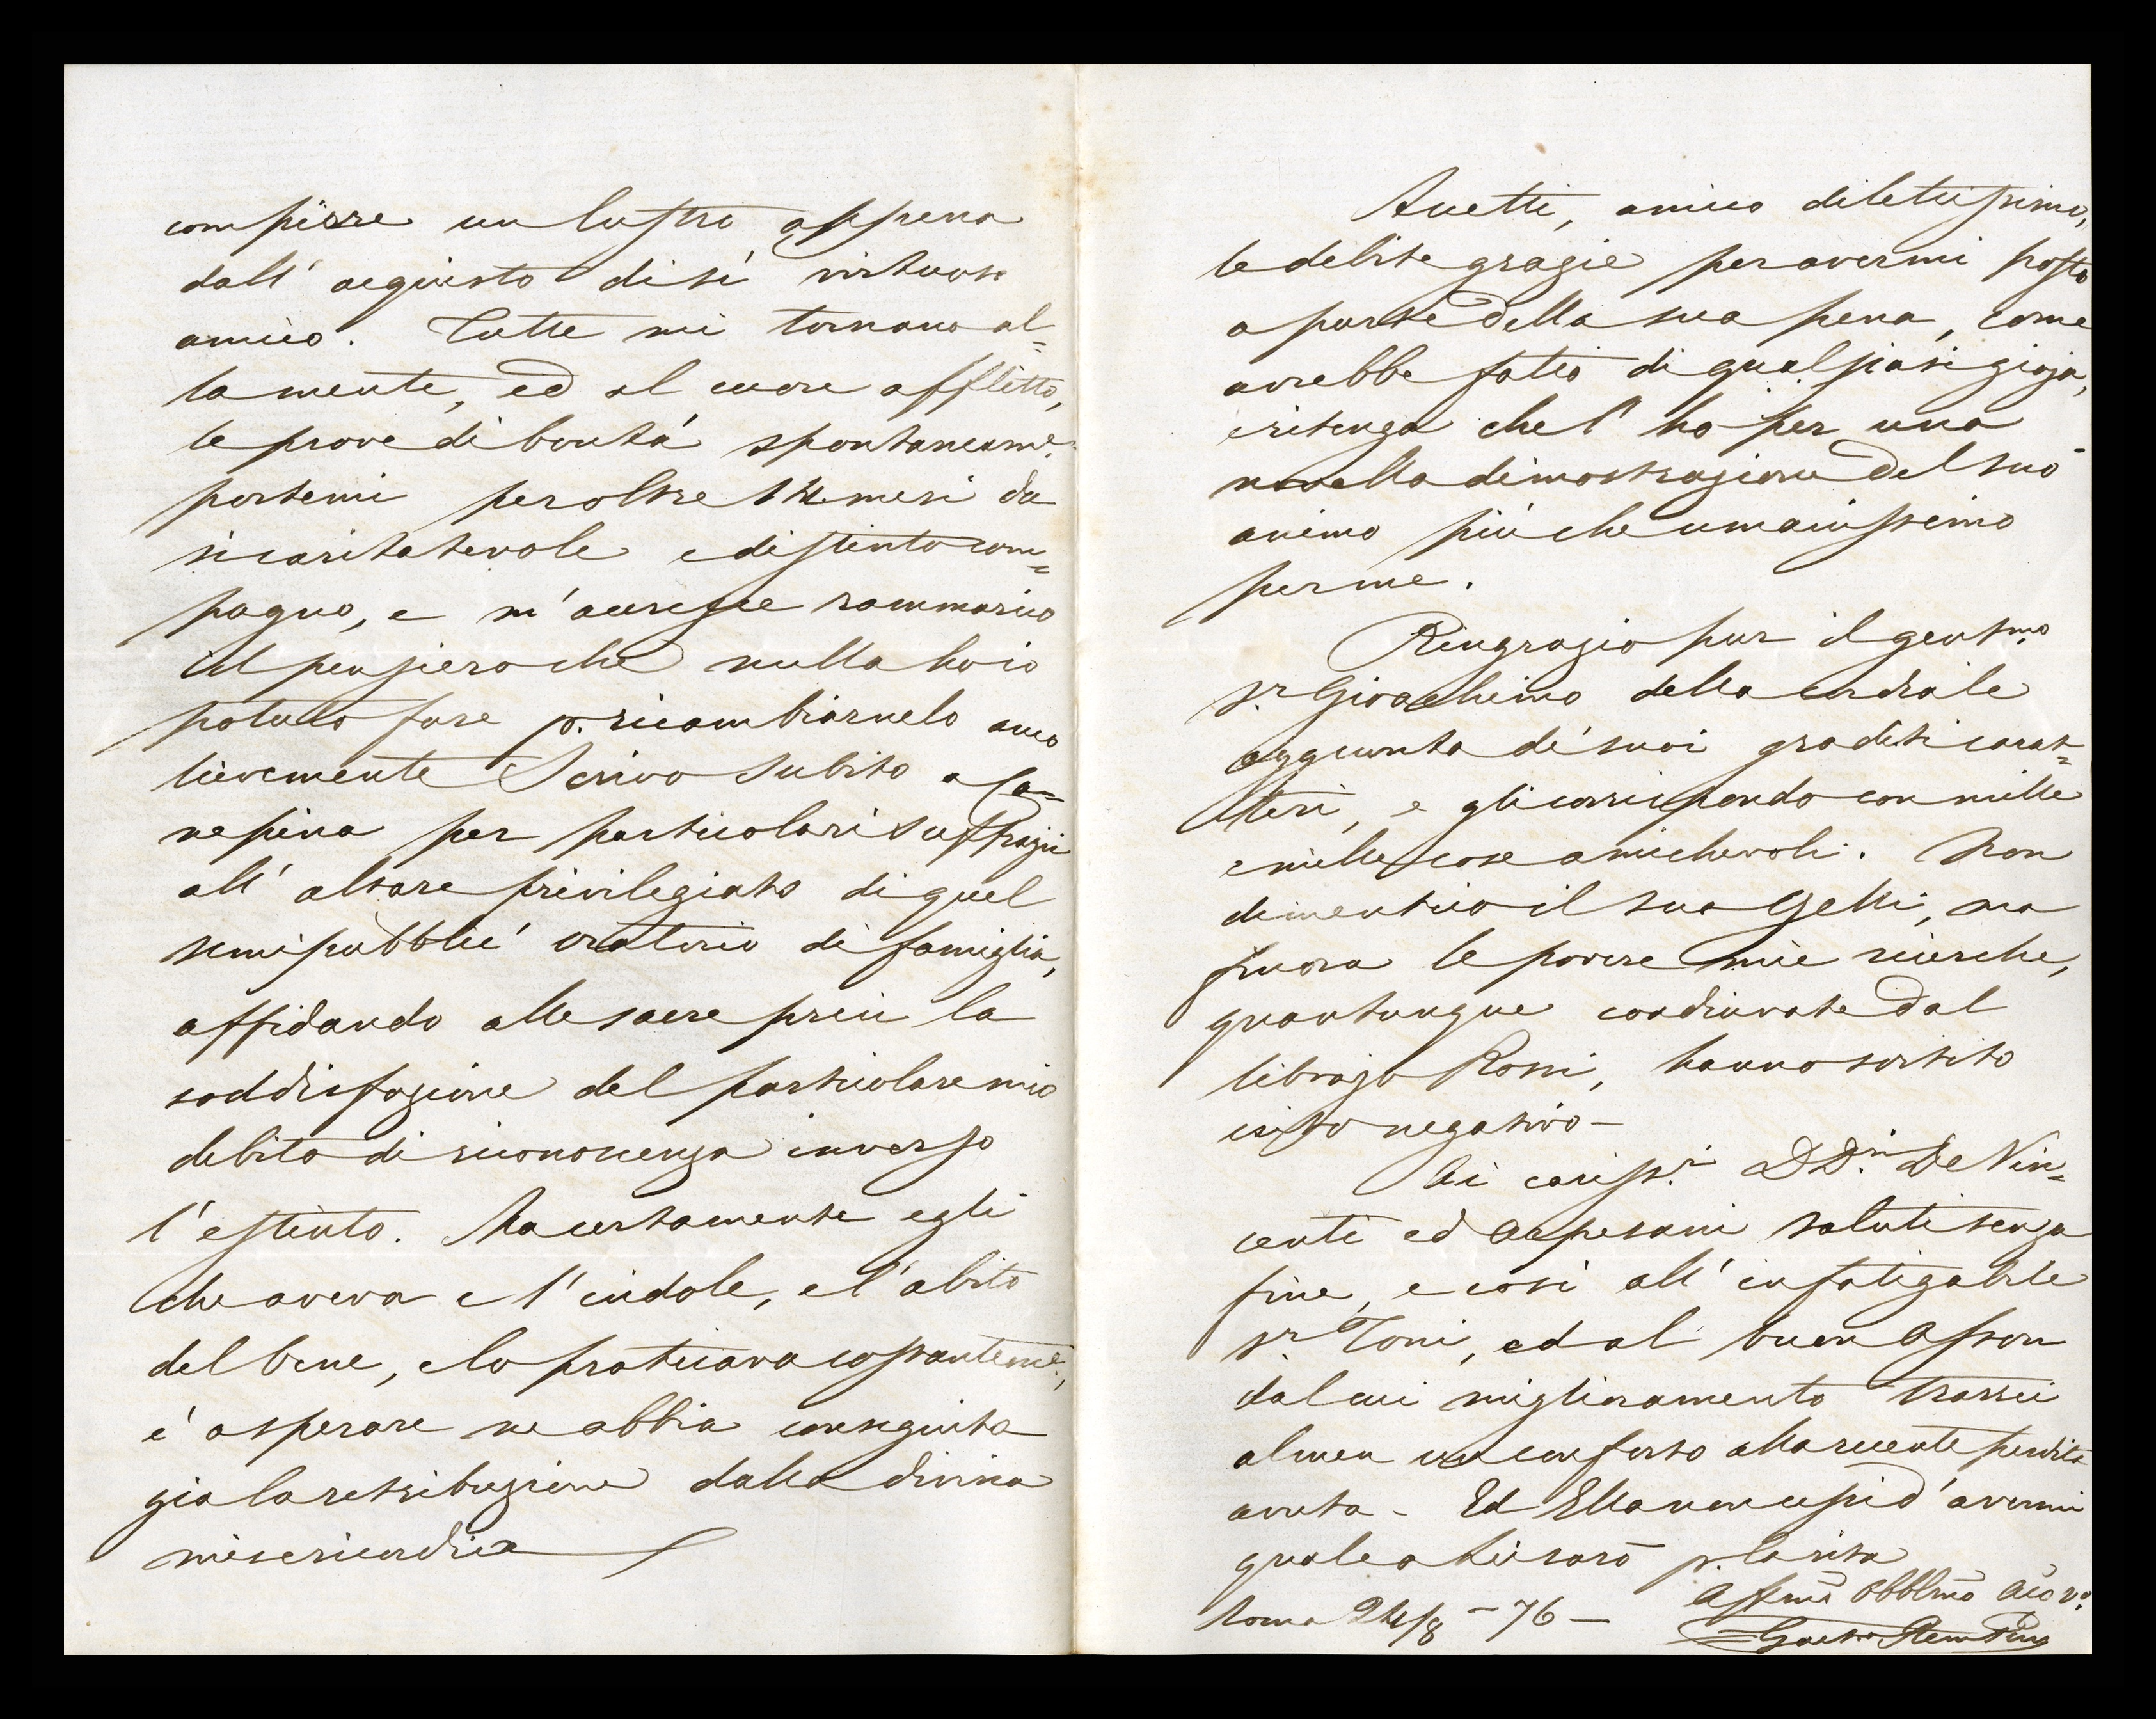 compiere un lustro appena
dall' acquisto di sì virtuoso
amico. Tutte mi tornano al=
la mente, ed al cuore afflitto,
le prove di bontà spontaneame.
portemi per oltre 14 mesi da
sì caritatevole e distinto com=
pagno, e m'accresce rammarico
il pensiero che nulla ho io
potuto fare p. ricambiarnelo anco
lievemente Scrivo subito a Ca=
nepina per particolari suffragii
all' altare privilegiato di quel
semipubblic' oratorio di famiglia,
affidando alle sacre preci la
soddisfazione del particolare mio
debito di riconoscenza inverso
l'estinto. Ma certamente egli
che aveva e l'indole, e l'abito
del bene, e lo praticava costanteme.,
è a sperare ne abbia conseguita
già la retribuzione dalla divina
misericordia
Accetti, amico dilettissimo,
le debite grazie per avermi posto
a parte della sua pena, come
avrebbe fatto di qualsiasi gioja,
e ritenga che l' ho per una
novella dimostrazione del suo
animo più che umanissimo
per me.
Ringrazio pur il gentmo.
Sr. Gioachimo della cordiale
aggiunta de' suoi graditi carat=
teri, e gli corrispondo con mille
e mille cose amichevoli. Non
dimentico il suo Gelli, ma
finora le povere mie ricerche,
quantunque coadiuvate dal
librajo Rossi, hanno sortito
esito negativo -
Ai cariss.i DD.ri De Vin=
centi ed Acpesani saluti senza
fine, e così all' infatigabile
Sr. Toni, ed al buon Asson
dal cui miglioramento trassi
almen un conforto alla recente perdita
avuta - Ed Ella non cessi d'avermi
quale a lei sarò p. la vita
Roma 24/8 - 76 - Affmo Obblmo Aico vo.